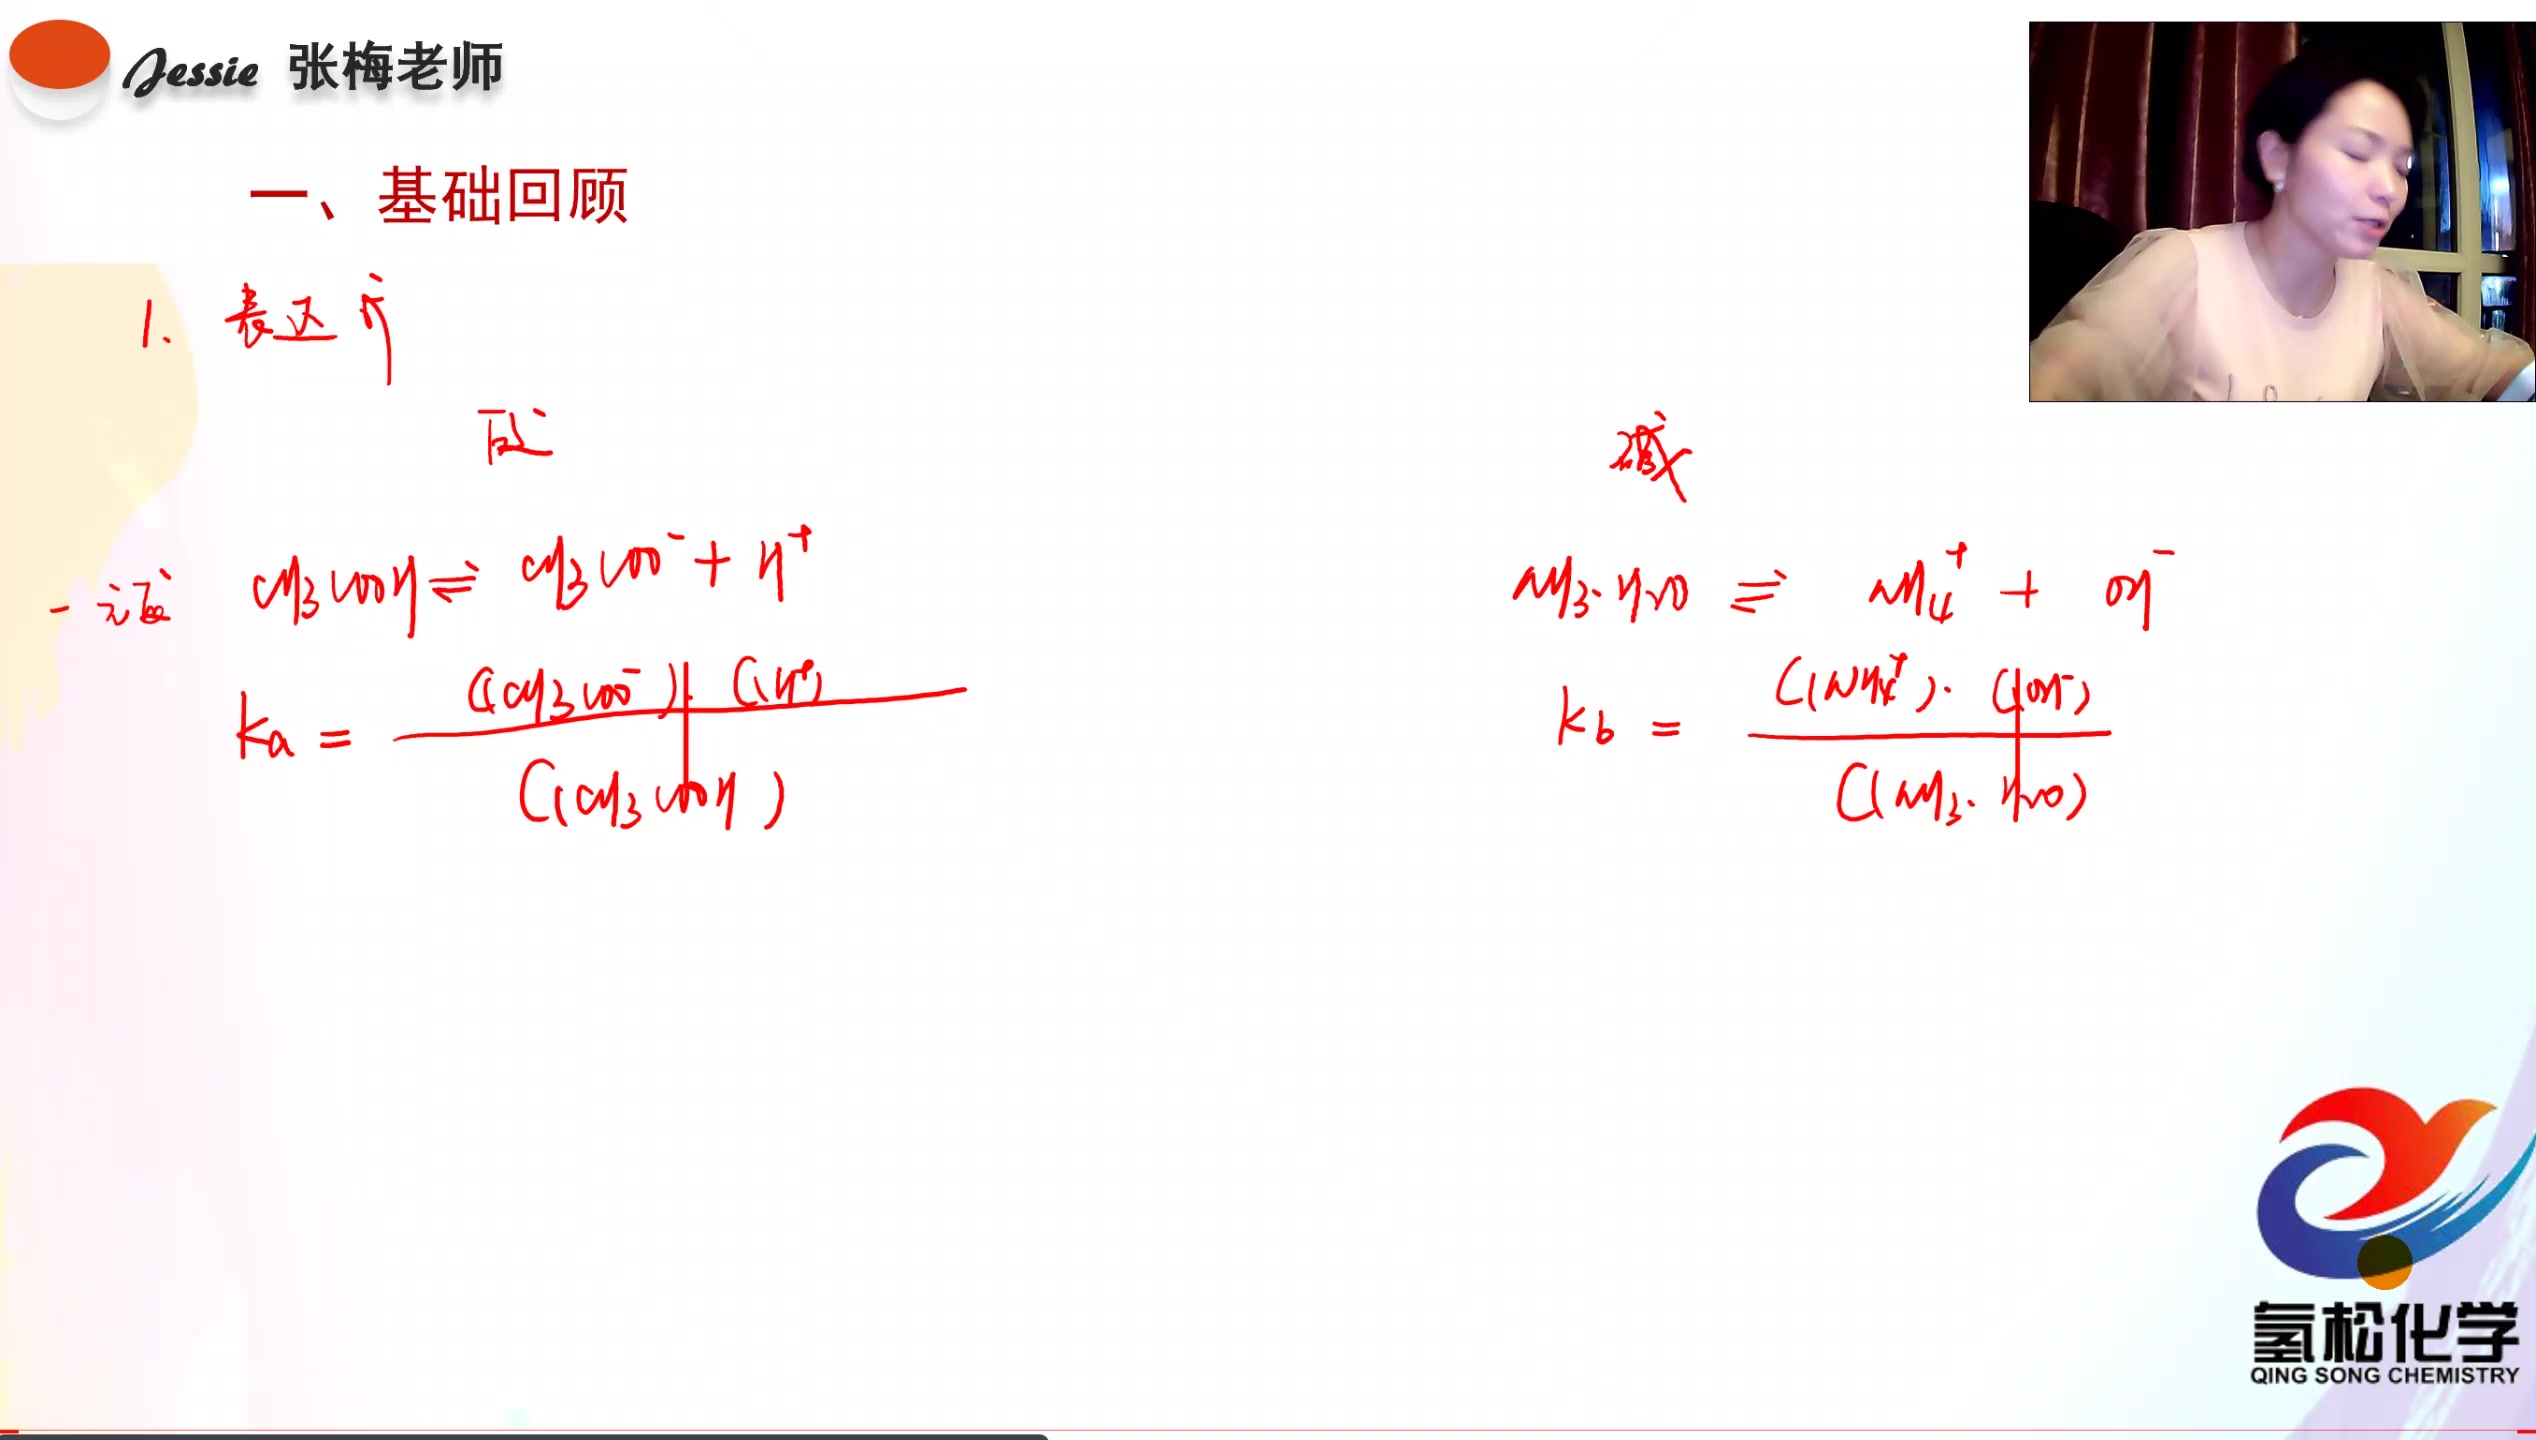 Jessie 张梅老师
一、基础回顾
1. 表达式
酸 碱
一元酸 CH3COOH ⇌ CH3COO⁻ + H⁺ NH3·H2O ⇌ NH4⁺ + OH⁻
Ka = C(CH3COO⁻)·C(H⁺) / C(CH3COOH) Kb = C(NH4⁺)·C(OH⁻) / C(NH3·H2O)
氢松化学
QING SONG CHEMISTRY